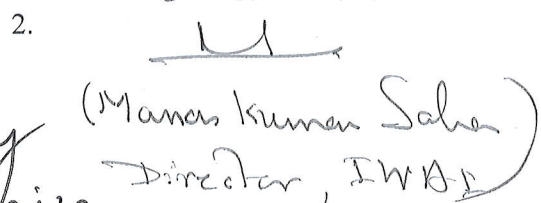 2.
(Manas Kumar Saha)
Director, IWAI